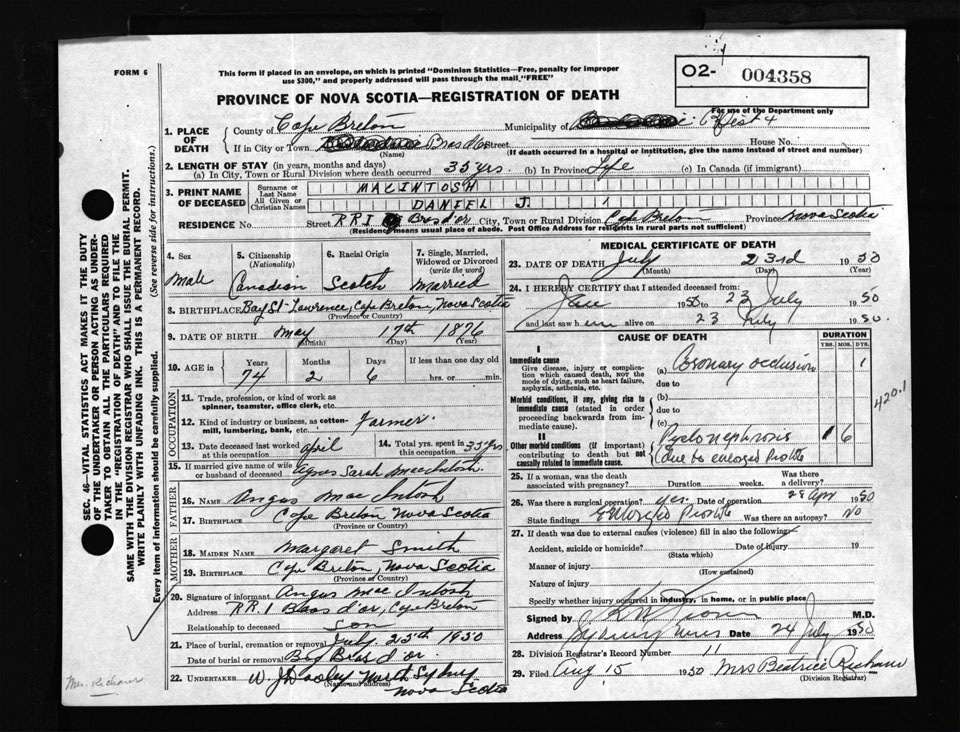 FORM 6
This form if placed in an envelope, on which is printed "Dominion Statistics—Free, penalty for improper
use $300," and properly addressed will pass through the mail "FREE"
PROVINCE OF NOVA SCOTIA—REGISTRATION OF DEATH
O2- 004358
For use of the Department only
1. PLACE OF DEATH
County of Cape Breton Municipality of
If in City or Town Bras d'or Street House No.
(Name) (If death occurred in a hospital or institution, give the name instead of street and number)
2. LENGTH OF STAY (in years, months and days)
(a) In City, Town or Rural Division where death occurred 35 yrs. (b) In Province Life (c) In Canada (if immigrant)
3. PRINT NAME OF DECEASED
Surname or Last Name MACINTOSH
All Given or Christian Names DANIEL J.
RESIDENCE No. Street RR1 Bras d'or City, Town or Rural Division Cape Breton Province Nova Scotia
(Residence means usual place of abode. Post Office Address for residents in rural parts not sufficient)
4. Sex Male
5. Citizenship (Nationality) Canadian
6. Racial Origin Scotch
7. Single, Married, Widowed or Divorced (write the word) Married
8. BIRTHPLACE Bay St. Lawrence, Cape Breton, Nova Scotia
(Province or Country)
9. DATE OF BIRTH May 17th 1876
(Month) (Day) (Year)
10. AGE in Years Months Days If less than one day old
74 2 6 hrs. or min.
OCCUPATION
11. Trade, profession, or kind of work as
spinner, teamster, office clerk, etc.
12. Kind of industry or business, as cotton-
mill, lumbering, bank, etc. Farmer
13. Date deceased last worked at this occupation April
14. Total yrs. spent in this occupation 35 yrs
15. If married give name of wife or husband of deceased Agnes Sarah MacIntosh
FATHER
16. Name Angus MacIntosh
17. Birthplace Cape Breton Nova Scotia
(Province or Country)
MOTHER
18. Maiden Name Margaret Smith
19. Birthplace Cape Breton, Nova Scotia
(Province or Country)
20. Signature of informant Angus MacIntosh
Address RR.1 Bras d'or, Cape Breton
Relationship to deceased son
21. Place of burial, cremation or removal July 25th 1950
Date of burial or removal Big Bras d'or.
22. UNDERTAKER W. J. Dooley North Sydney
(Name and address) Nova Scotia
MEDICAL CERTIFICATE OF DEATH
23. DATE OF DEATH July 23rd 1950
(Month) (Day) (Year)
24. I HEREBY CERTIFY that I attended deceased from:
June 1950 to 23 July 1950
and last saw him alive on 23 July 1950.
CAUSE OF DEATH
DURATION
YRS. MOS. DYS.
I
Immediate cause
Give disease, injury or complication which caused death, not the mode of dying, such as heart failure, asphyxia, asthenia, etc.
(a) Coronary occlusion 1
due to
Morbid conditions, if any, giving rise to immediate cause (stated in order proceeding backwards from immediate cause)
(b)
due to
(c)
420.1
II
Other morbid conditions (if important) contributing to death but not causally related to immediate cause.
Pyelonephrosis 6
due to enlarged Prostate
25. If a woman, was the death associated with pregnancy? Duration weeks. Was there a delivery?
26. Was there a surgical operation? yes. Date of operation 28 Apr 1950
State findings Enlarged Prostate Was there an autopsy? No
27. If death was due to external causes (violence) fill in also the following:
Accident, suicide or homicide? Date of injury 19
(State which)
Manner of injury
(How sustained)
Nature of injury
Specify whether injury occurred in industry, in home, or in public place
Signed by M.D.
Address Sydney Mines Date 24 July 1950
28. Division Registrar's Record Number 11
29. Filed Aug 15 1950 Mrs Beatrice
(Division Registrar)
SEC. 46—VITAL STATISTICS ACT MAKES IT THE DUTY
OF THE UNDERTAKER OR PERSON ACTING AS UNDER-
TAKER TO OBTAIN ALL THE PARTICULARS REQUIRED
IN THE "REGISTRATION OF DEATH" AND TO FILE THE
SAME WITH THE DIVISION REGISTRAR WHO SHALL ISSUE THE BURIAL PERMIT.
WRITE PLAINLY WITH UNFADING INK. THIS IS A PERMANENT RECORD.
Every item of information should be carefully supplied. (See reverse side for instructions.)
Mrs.